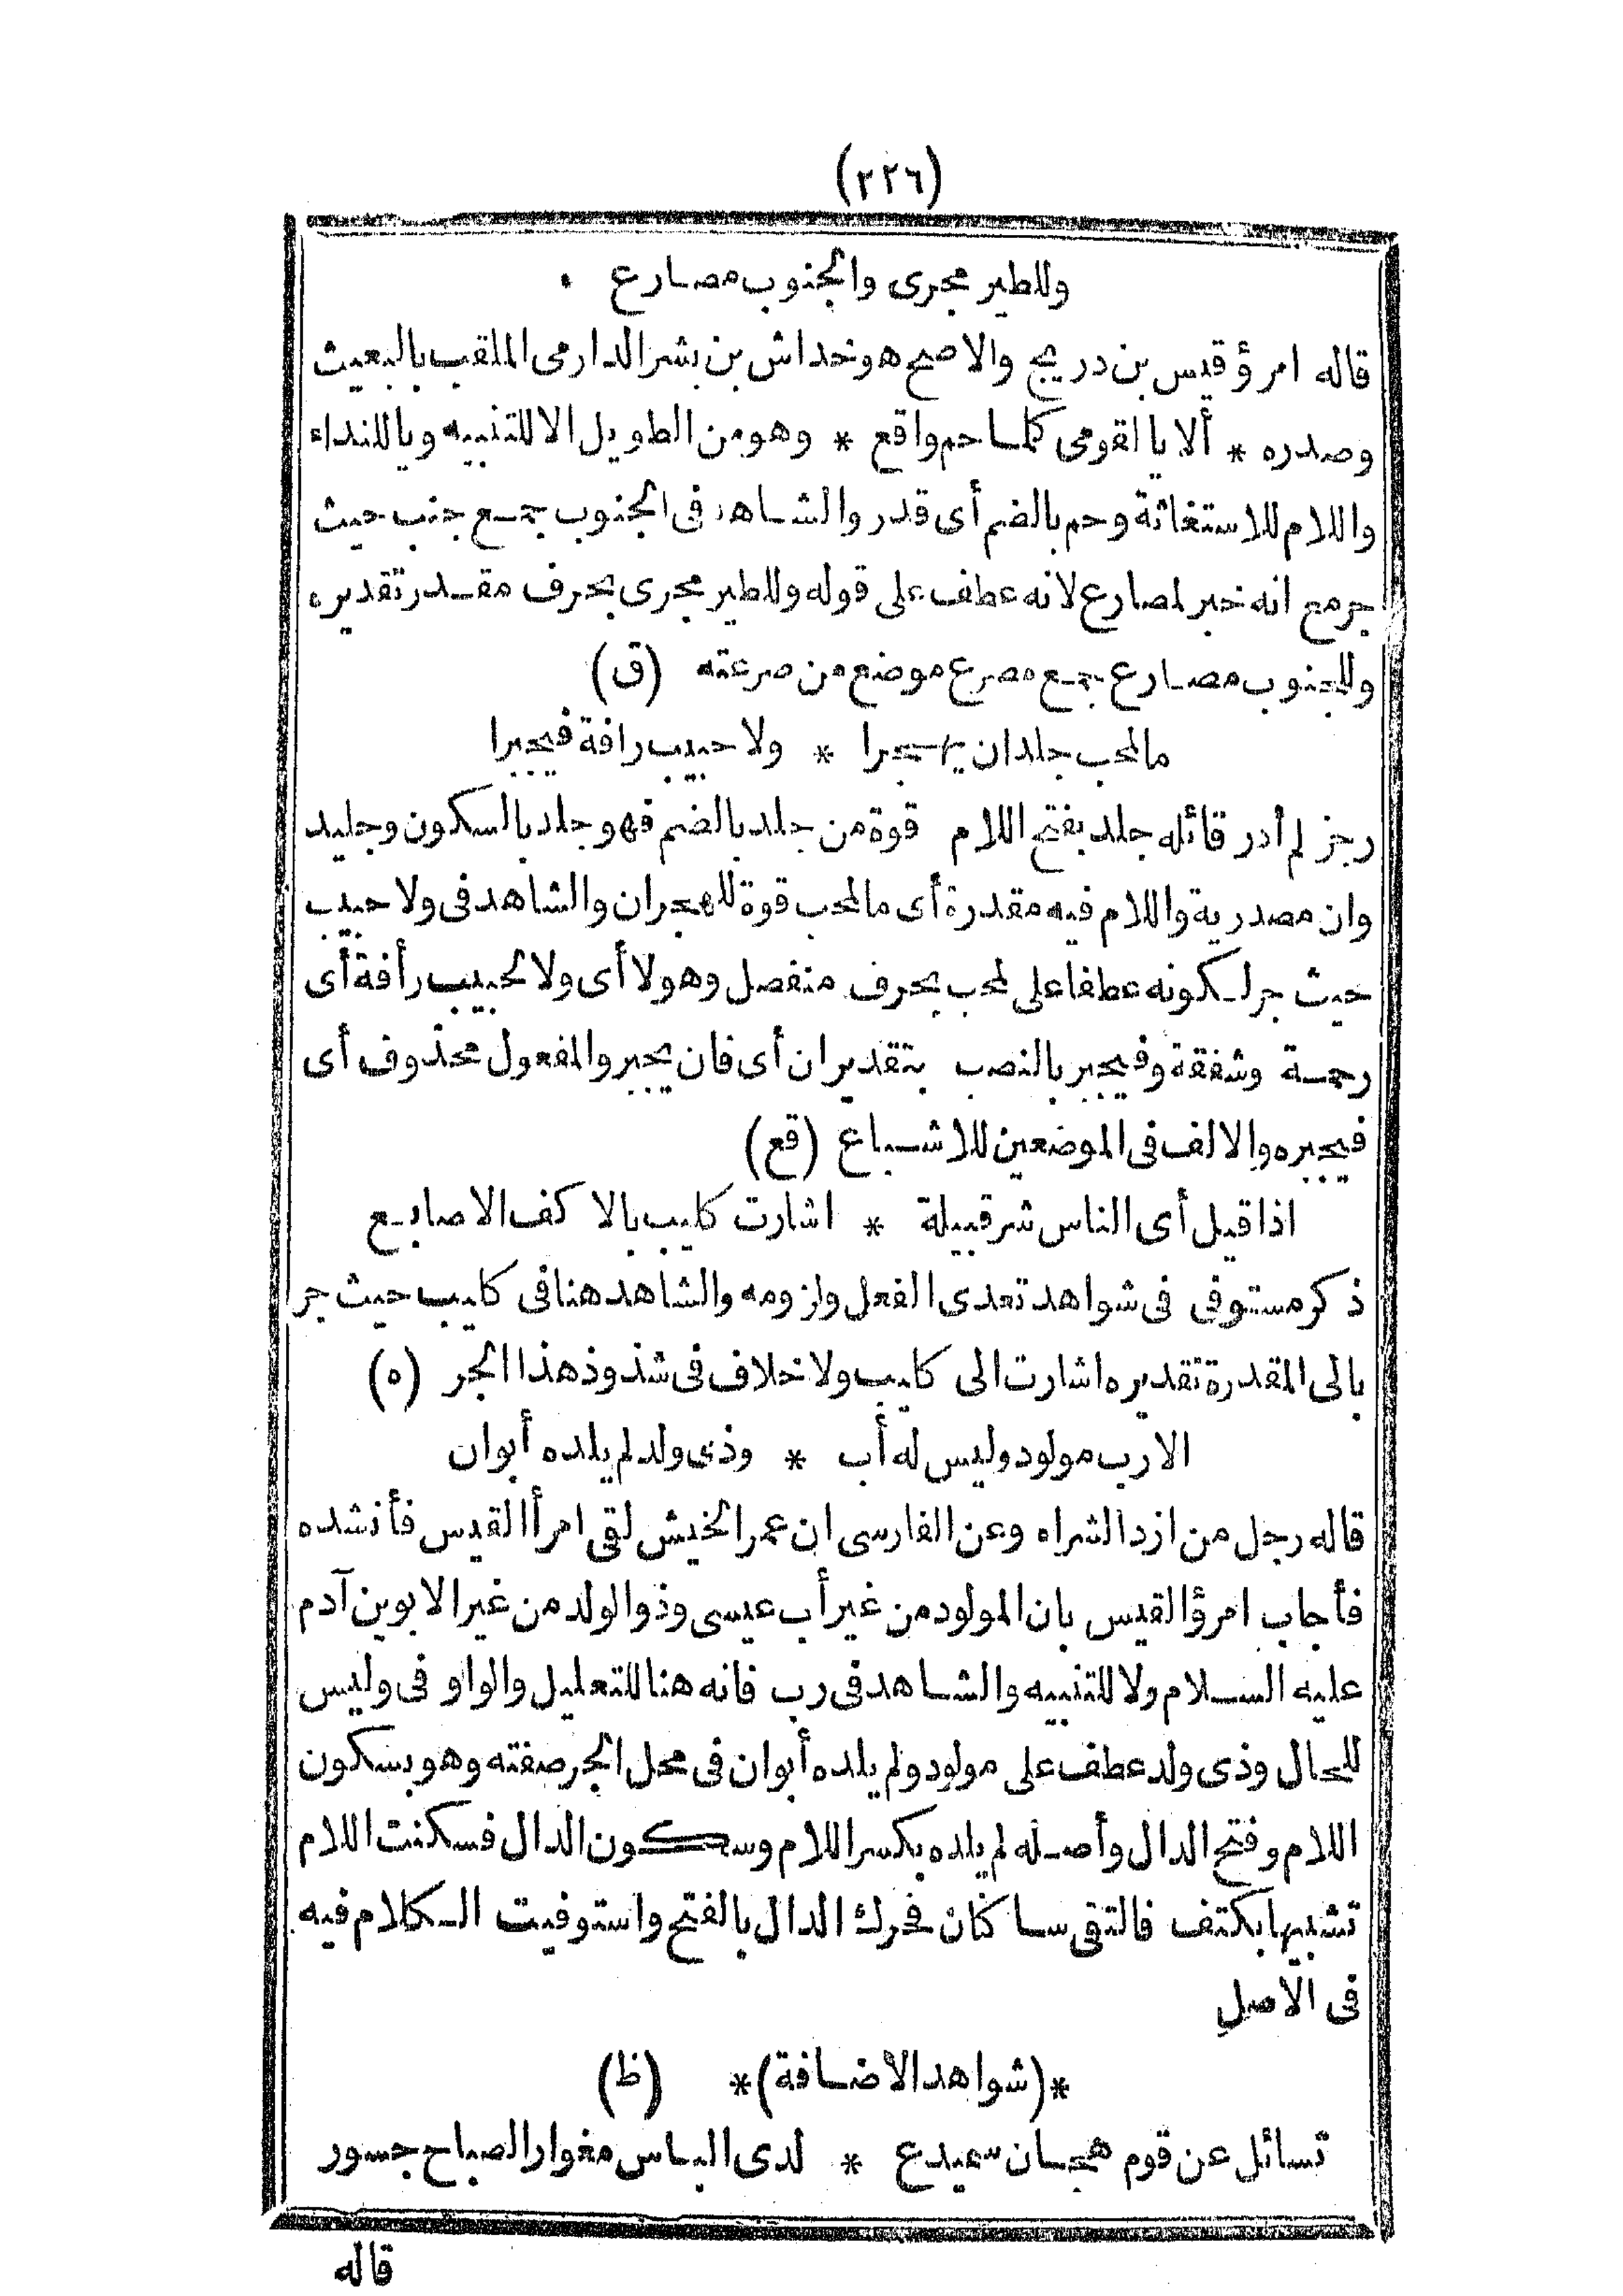 (٢٢٦)
وللطير مجرى والجنوب مصارع .
قاله امرؤ قيس بن دريج والاصح هو خداش بن بشر الدارمى الملقب بالبعيث
وصدره * ألا يا لقومى كلما حم واقع * وهو من الطويل الا للتنبيه ويا للنداء
واللام للاستغاثة وحم بالضم أى قدر والشاهد فى الجنوب جمع جنب حيث
جر مع انه خبر لمصارع لانه عطف على قوله وللطير مجرى بحرف مقدر تقديره
وللجنوب مصارع جمع مصرع موضع من صرعته (ق)
ما لمحب جلد ان يهجرا * ولا حبيب رافة فيجبرا
رجز لم أدر قائله جلد بفتح اللام قوة من جلد بالضم فهو جلد بالسكون وجليد
وان مصدرية واللام فيه مقدرة أى ما لمحب قوة للهجران والشاهد فى ولا حبيب
حيث جر لكونه عطفا على لمحب بحرف منفصل وهو لا أى ولا لحبيب رأفة أى
رحمة وشفقة وفيجبر بالنصب بتقدير ان أى فان يجبر والمفعول محذوف أى
فيجبره والالف فى الموضعين للاشباع (قع)
اذا قيل أى الناس شر قبيلة * اشارت كليب بالاكف الاصابع
ذكر مستوفى فى شواهد تعدى الفعل ولزومه والشاهد هنا فى كليب حيث جر
بالى المقدرة تقديره اشارت الى كليب ولا خلاف فى شذوذ هذا الجر (ه)
الا رب مولود وليس له أب * وذى ولد لم يلده أبوان
قاله رجل من ازد الشراه وعن الفارسى ان عمر الخيش لقى امرأ القيس فأنشده
فأجاب امرؤ القيس بان المولود من غير أب عيسى وذو الولد من غير الابوين آدم
عليه السلام ولا للتنبيه والشاهد فى رب فانه هنا للتعليل والواو فى وليس
للحال وذى ولد عطف على مولود ولم يلده أبوان فى محل الجر صفته وهو بسكون
اللام وفتح الدال وأصله لم يلده بكسر اللام وسكون الدال فسكنت اللام
تشبيها بكتف فالتقى ساكنان فحرك الدال بالفتح واستوفيت الكلام فيه
فى الاصل
*(شواهد الاضافة)* (ظ)
تسائل عن قوم هجان سميدع * لدى الباس مغوار الصباح جسور
قاله